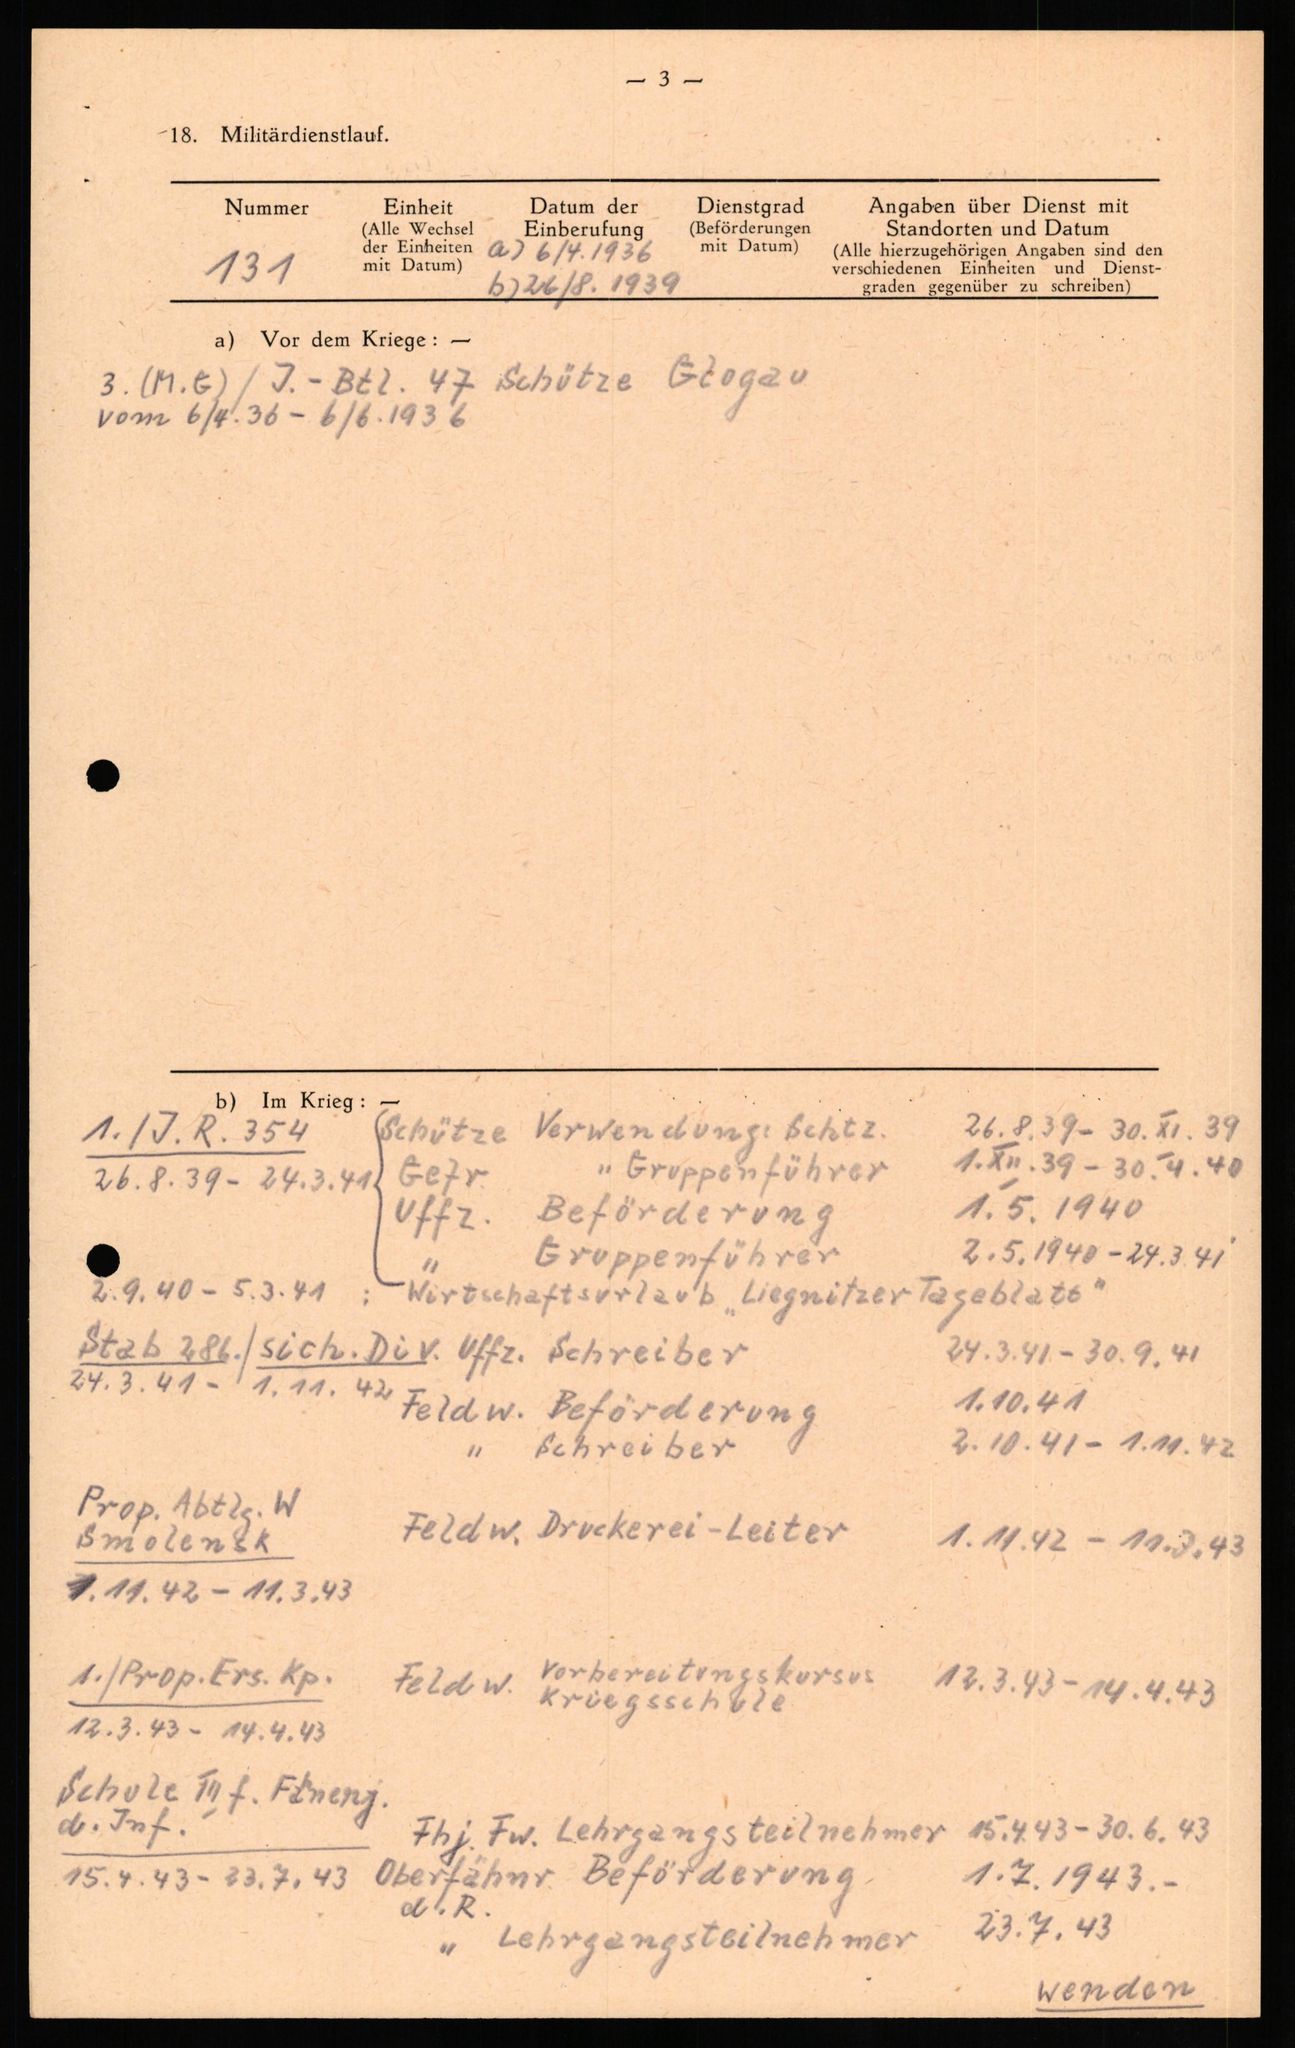 — 3 —
18. Militärdienstlauf.
Nummer
131
Einheit
(Alle Wechsel
der Einheiten
mit Datum)
Datum der
Einberufung
a) 6/4.1936
b) 26/8. 1939
Dienstgrad
(Beförderungen
mit Datum)
Angaben über Dienst mit
Standorten und Datum
(Alle hierzugehörigen Angaben sind den
verschiedenen Einheiten und Dienst-
graden gegenüber zu schreiben)
a) Vor dem Kriege: —
3. (M.G) / J. - Btl. 47 Schütze Glogau
vom 6/4.36 - 6/6.1936
b) Im Krieg: —
1. / J. R. 354 Schütze Verwendung: Schtz. 26.8.39 - 30.XI.39
26.8.39 - 24.3.41 Gefr. " Gruppenführer 1.XII.39 - 30.4.40
Uffz. Beförderung 1.5.1940
" Gruppenführer 2.5.1940 - 24.3.41
2.9.40 - 5.3.41 : Wirtschaftsurlaub „Liegnitzer Tageblatt"
Stab 286. / sich. Div. Uffz. Schreiber 24.3.41 - 30.9.41
24.3.41 - 1.11.42
Feldw. Beförderung 1.10.41
" Schreiber 2.10.41 - 1.11.42
Prop. Abtlg. W
Smolensk Feldw. Druckerei-Leiter 1.11.42 - 11.3.43
1.11.42 - 11.3.43
1./Prop. Ers. Kp. Feldw. Vorbereitungskursus 12.3.43 - 14.4.43
Kriegsschule
12.3.43 - 14.4.43
Schule III f. Fhnenj.
d. Inf.
Fhj. Fw. Lehrgangsteilnehmer 15.4.43 - 30.6.43
15.4.43 - 23.7.43 Oberfähnr. Beförderung 1.7.1943.-
d. R.
" Lehrgangsteilnehmer 23.7.43
wenden